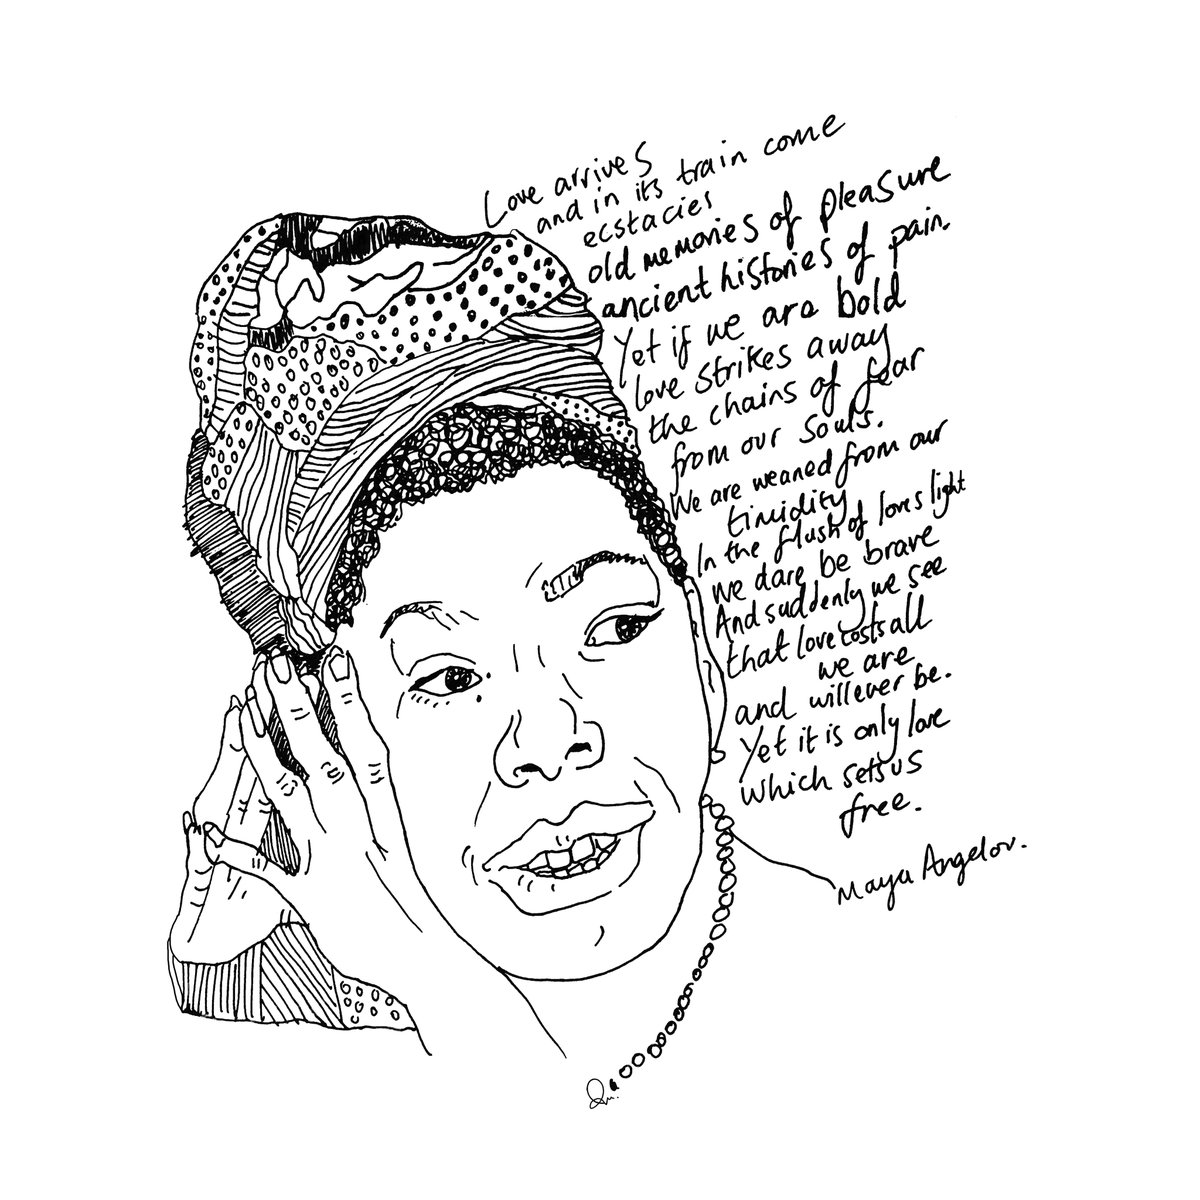 Love arrives
and in its train come
ecstacies
old memories of pleasure
ancient histories of pain.
Yet if we are bold
love strikes away
the chains of fear
from our souls.
We are weaned from our
timidity
In the flush of loves light
we dare be brave
And suddenly we see
that love costs all
we are
and will ever be.
Yet it is only love
which sets us
free.
Maya Angelou.